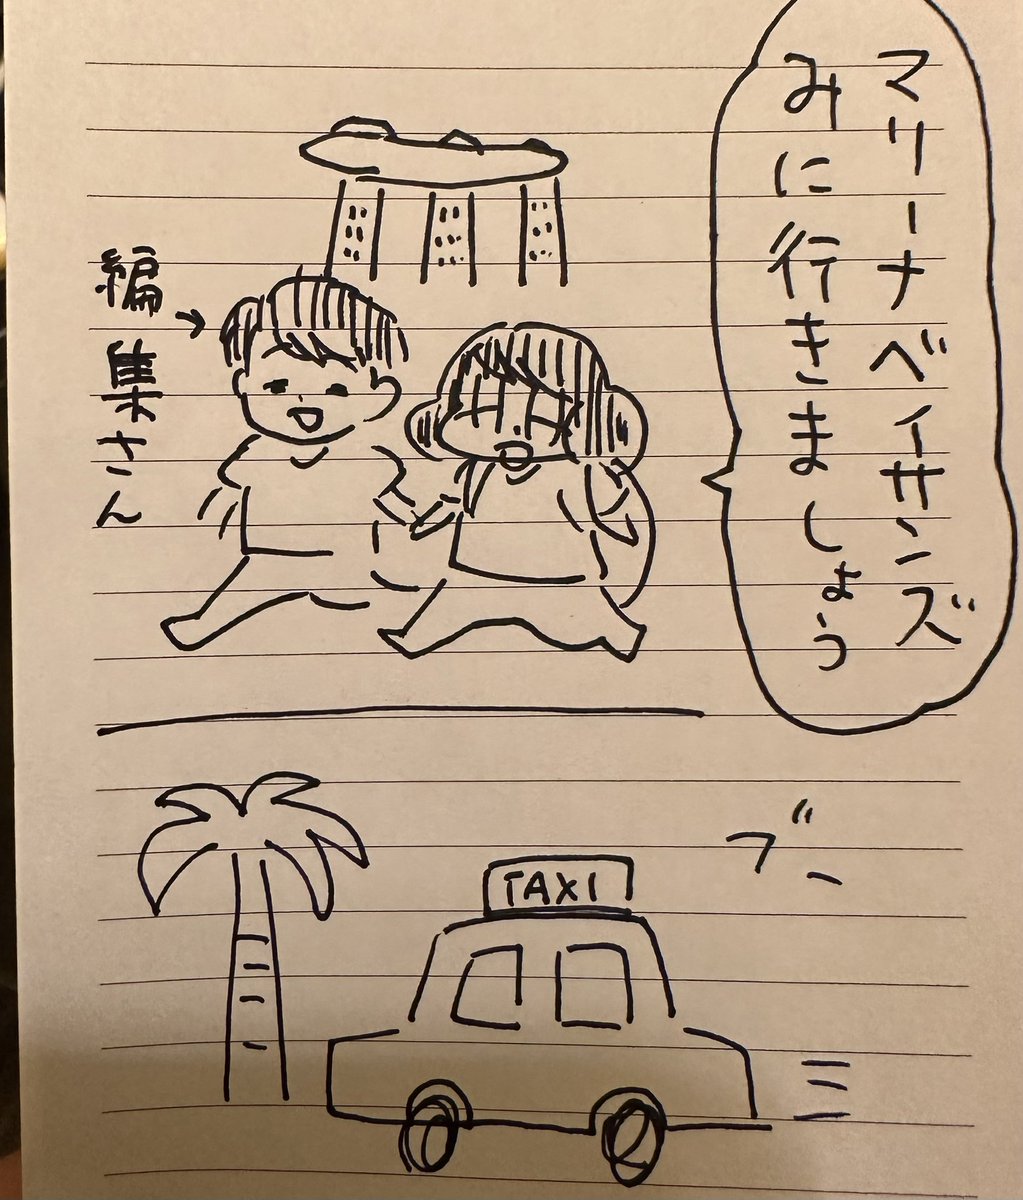 マリーナベイサンズ
みに行きましょう
編集さん
ブーン
TAXI